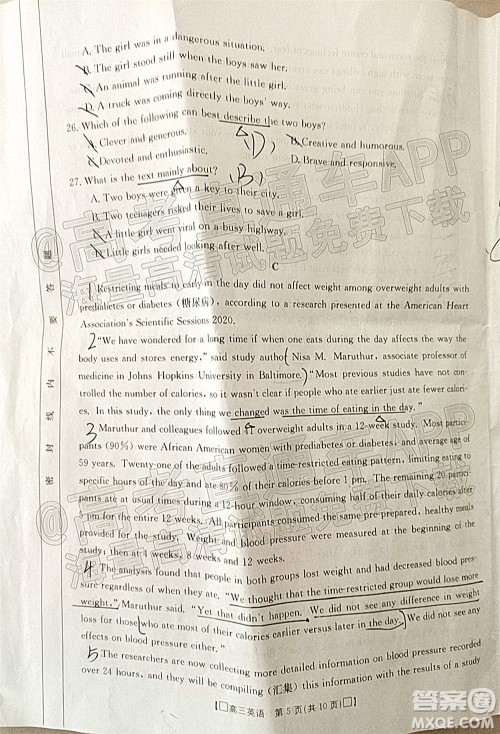 A. The girl was in a dangerous situation.
B. The girl stood still when the boys saw her.
C. An animal was running after the little girl.
D. A truck was coming directly the boys' way.
26. Which of the following can best describe the two boys? (D)
A. Clever and generous. B. Creative and humorous.
C. Devoted and enthusiastic. D. Brave and responsive.
27. What is the text mainly about? (B)
A. Two boys were given a key to their city.
B. Two teenagers risked their lives to save a girl.
C. A little girl went viral on a busy highway.
D. Little girls needed looking after well.
C
1 Restricting meals to early in the day did not affect weight among overweight adults with
prediabetes or diabetes (糖尿病), according to a research presented at the American Heart
Association's Scientific Sessions 2020.
2 "We have wondered for a long time if when one eats during the day affects the way the
body uses and stores energy," said study author Nisa M. Maruthur, associate professor of
medicine in Johns Hopkins University in Baltimore. "Most previous studies have not con-
trolled the number of calories, so it wasn't clear if people who ate earlier just ate fewer calori-
es. In this study, the only thing we changed was the time of eating in the day."
3 Maruthur and colleagues followed 41 overweight adults in a 12-week study. Most partici-
pants (90%) were African American women with prediabetes or diabetes, and average age of
59 years. Twenty-one of the adults followed a time-restricted eating pattern, limiting eating to
specific hours of the day and ate 80% of their calories before 1 pm. The remaining 20 partici-
pants ate at usual times during a 12-hour window, consuming half of their daily calories after
5 pm for the entire 12 weeks. All participants consumed the same pre-prepared, healthy meals
provided for the study. Weight and blood pressure were measured at the beginning of the
study; then at 4 weeks, 8 weeks and 12 weeks.
4 The analysis found that people in both groups lost weight and had decreased blood pres-
sure regardless of when they ate. "We thought that the time-restricted group would lose more
weight," Maruthur said. "Yet that didn't happen. We did not see any difference in weight
loss for those who ate most of their calories earlier versus later in the day. We did not see any
effects on blood pressure either."
5 The researchers are now collecting more detailed information on blood pressure recorded
over 24 hours, and they will be compiling (汇集) this information with the results of a study
【□高三英语 第 5 页(共 10 页)□】
密 封 线 内 不 要 答 题
@高考直通车APP
海量高清试题免费下载
@高考直通车APP
海量高清试题免费下载
作业帮
zuoyebang.com